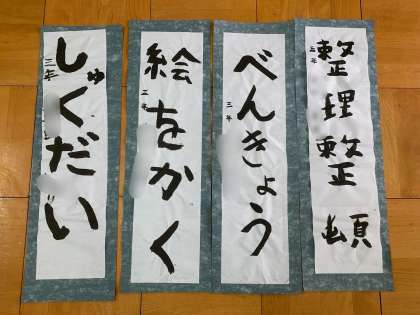 整理整頓
べんきょう
三年
絵をかく
二年
しゅくだい
三年